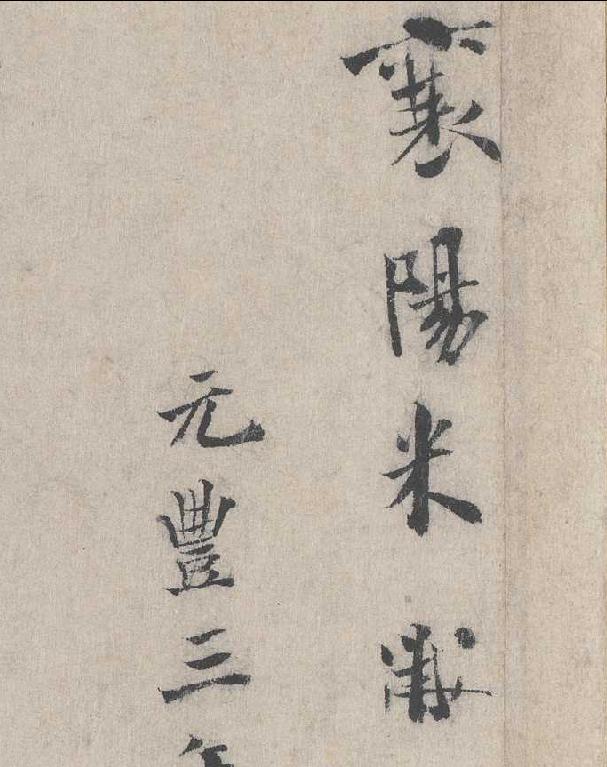 襄陽米黻
元豐三年